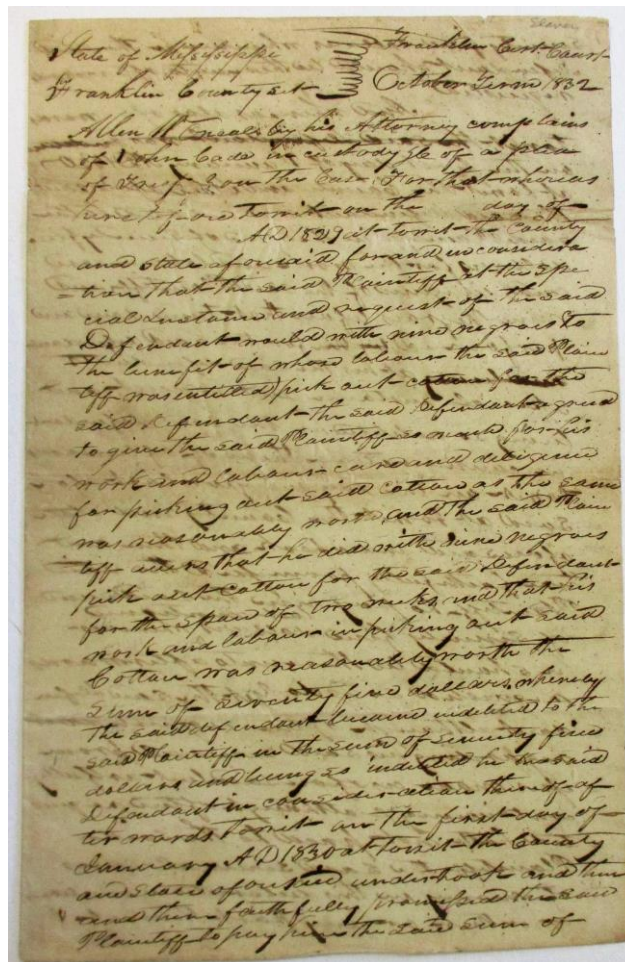 Slaves
State of Mississippi
Franklin County Sct
Franklin Cirt. Court
October Term 1832
Allen by his Attorney complains
of John Cade in custody &c of a plea
of on the Case. For that whereas
heretofore towit on the day of
AD 1829 at towit the County
and State aforesaid for and in considera
tion that the said Plaintiff at the spe
cial Instance and request of the said
Defendant would with nine negroes to
the benefit of whose labour the said Plain
tiff was entitled pick out cotton for the
said Defendant the said Defendant agreed
to give the said Plaintiff so much for his
work and labour care and diligence
for picking out said cotton as the same
was reasonably worth, and the said Plain
tiff avers that he did with nine negroes
pick out cotton for the said Defendant
for the span of two weeks and that his
work and labour in picking out said
Cotton was reasonably worth the
sum of seventy five dollars, whereby
the said defendant became indebted to the
said Plaintiff in the sum of seventy five
dollars and being so indebted he the said
Defendant in consideration thereof af
terwards towit on the first day of
January AD 1830 at towit the County
and State aforesaid undertook and then
and there faithfully promised the said
Plaintiff to pay him the said sum of